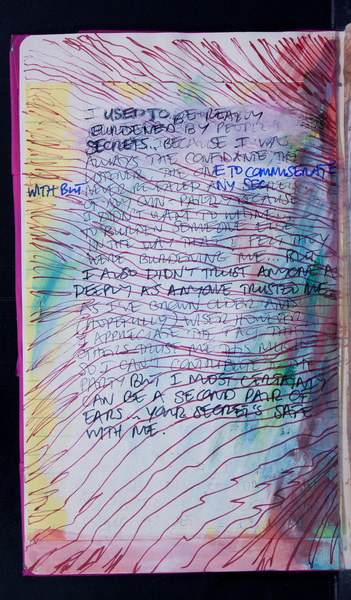 I USED TO BE REALLY
BURDENED BY PEOPLE'S
SECRETS. BECAUSE I WAS
ALWAYS THE CONFIDANTE, THE
LISTENER, THE ONE TO COMMISERATE
WITH BUT NEVER REVEALED ANY SECRETS
OF MY OWN - PARTLY BECAUSE
I DIDN'T WANT TO
TO BURDEN SOMEONE ELSE
IN THE WAY THAT I FELT THEY
WERE BURDENING ME... BUT
I ALSO DIDN'T TRUST ANYONE AS
DEEPLY AS ANYONE TRUSTED ME.
AS I'VE GROWN OLDER AND
HOPEFULLY WISER HOWEVER
I APPRECIATE THE FACT THAT
OTHERS TRUST ME THIS MUCH
SO I CAN'T
PARTY BUT I MOST CERTAINLY
CAN BE A SECOND PAIR OF
EARS... YOUR SECRET'S SAFE
WITH ME.